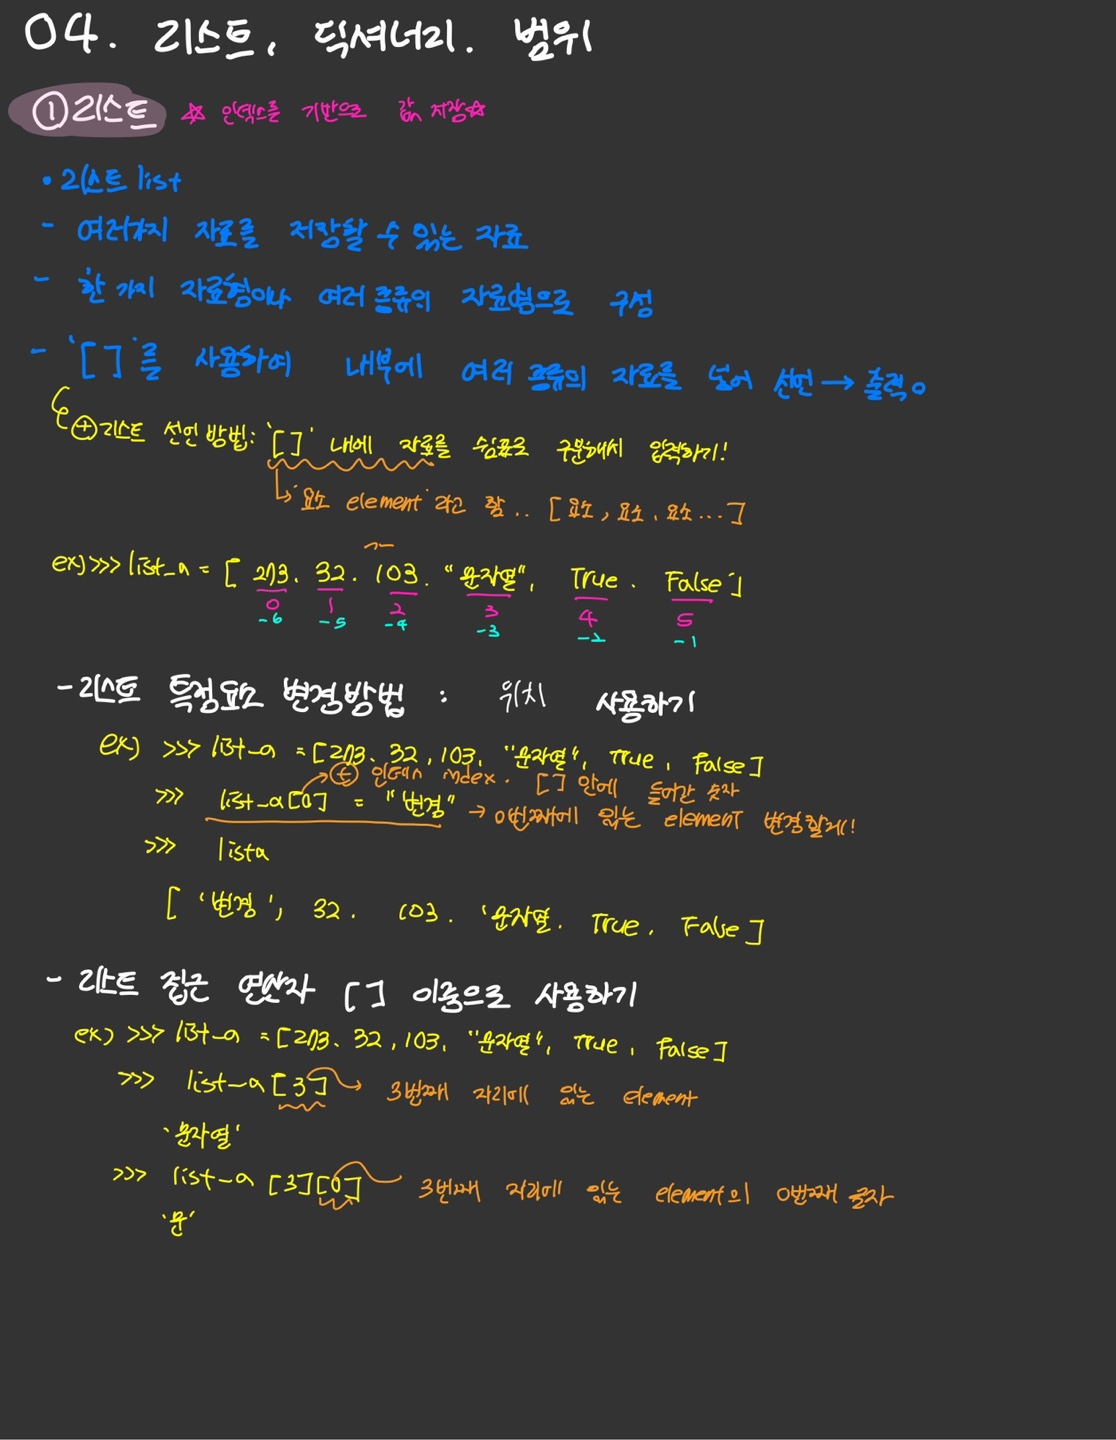 04. 리스트, 딕셔너리. 범위
① 리스트 ☆ 인덱스를 기반으로 값 저장☆
• 리스트 list
- 여러가지 자료를 저장할 수 있는 자료
- 한 가지 자료형이나 여러 종류의 자료형으로 구성
- '[ ]'를 사용하여 내부에 여러 종류의 자료를 넣어 선언 → 출력。
⊕ 리스트 선언 방법: '[ ]' 내에 자료를 쉼표로 구분해서 입력하기!
↳ '요소 element' 라고 함.. [ 요소, 요소, 요소... ]
ex) >>> list_a = [ 273. 32. 103. "문자열", True. False ]
0 1 2 3 4 5
-6 -5 -4 -3 -2 -1
- 리스트 특정요소 변경방법 : 위치 사용하기
ex) >>> list_a = [273. 32, 103. "문자열", True, False]
→ ⊕ 인덱스 index. [ ] 안에 들어간 숫자
>>> list_a[0] = "변경" → 0번째에 있는 element 변경할게!
>>> lista
[ '변경', 32. 103. '문자열. True. False ]
- 리스트 접근 연산자 [ ] 이중으로 사용하기
ex) >>> list_a = [273. 32, 103. "문자열", True, False]
>>> list_a [3] → 3번째 자리에 있는 element
'문자열'
>>> list_a [3][0] 3번째 자리에 있는 element의 0번째 글자
'문'